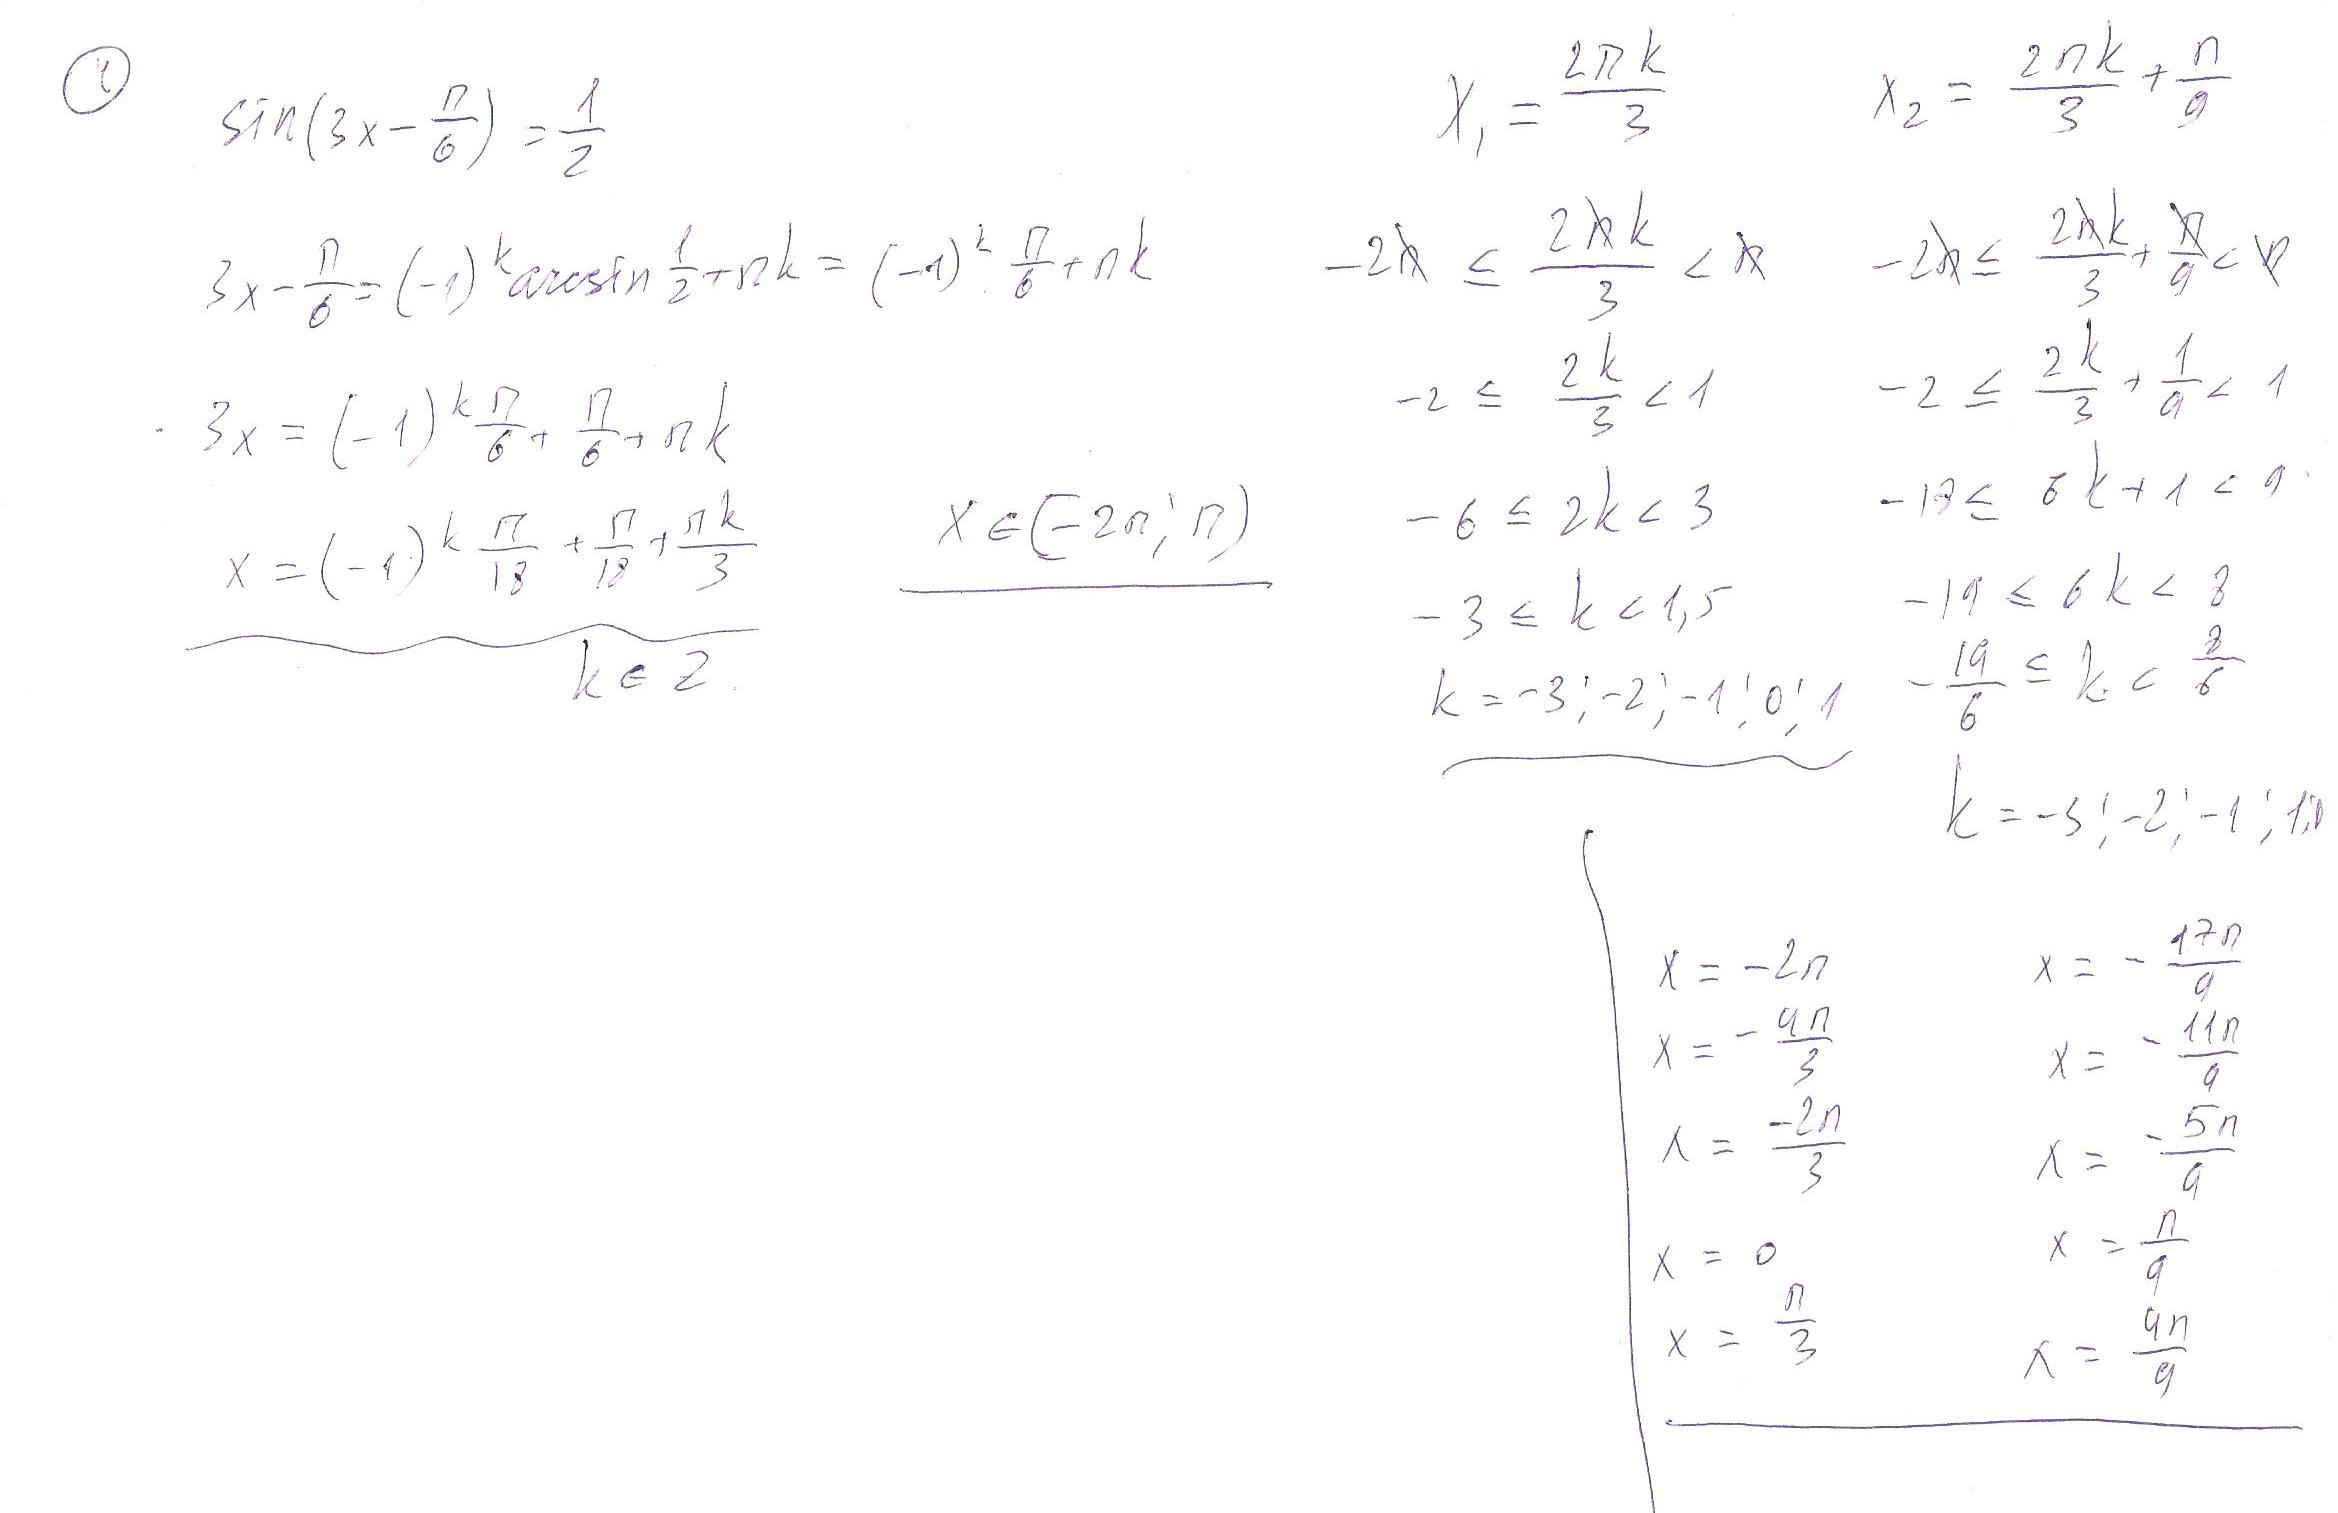 1
sin(3x - π/6) = 1/2
3x - π/6 = (-1)^k arcsin 1/2 + πk = (-1)^k π/6 + πk
3x = (-1)^k π/6 + π/6 + πk
x = (-1)^k π/18 + π/18 + πk/3
k ∈ Z.
x ∈ [-2π; π)
x₁ = 2πk/3
-2π ≤ 2πk/3 < π
-2 ≤ 2k/3 < 1
-6 ≤ 2k < 3
-3 ≤ k < 1,5
k = -3; -2; -1; 0; 1
x₂ = 2πk/3 + π/9
-2π ≤ 2πk/3 + π/9 < π
-2 ≤ 2k/3 + 1/9 < 1
-18 ≤ 6k + 1 < 9
-19 ≤ 6k < 8
-19/6 ≤ k < 8/6
k = -3; -2; -1; 1; 0
x = -2π
x = -4π/3
x = -2π/3
x = 0
x = π/3
x = -17π/9
x = -11π/9
x = -5π/9
x = π/9
x = 4π/9